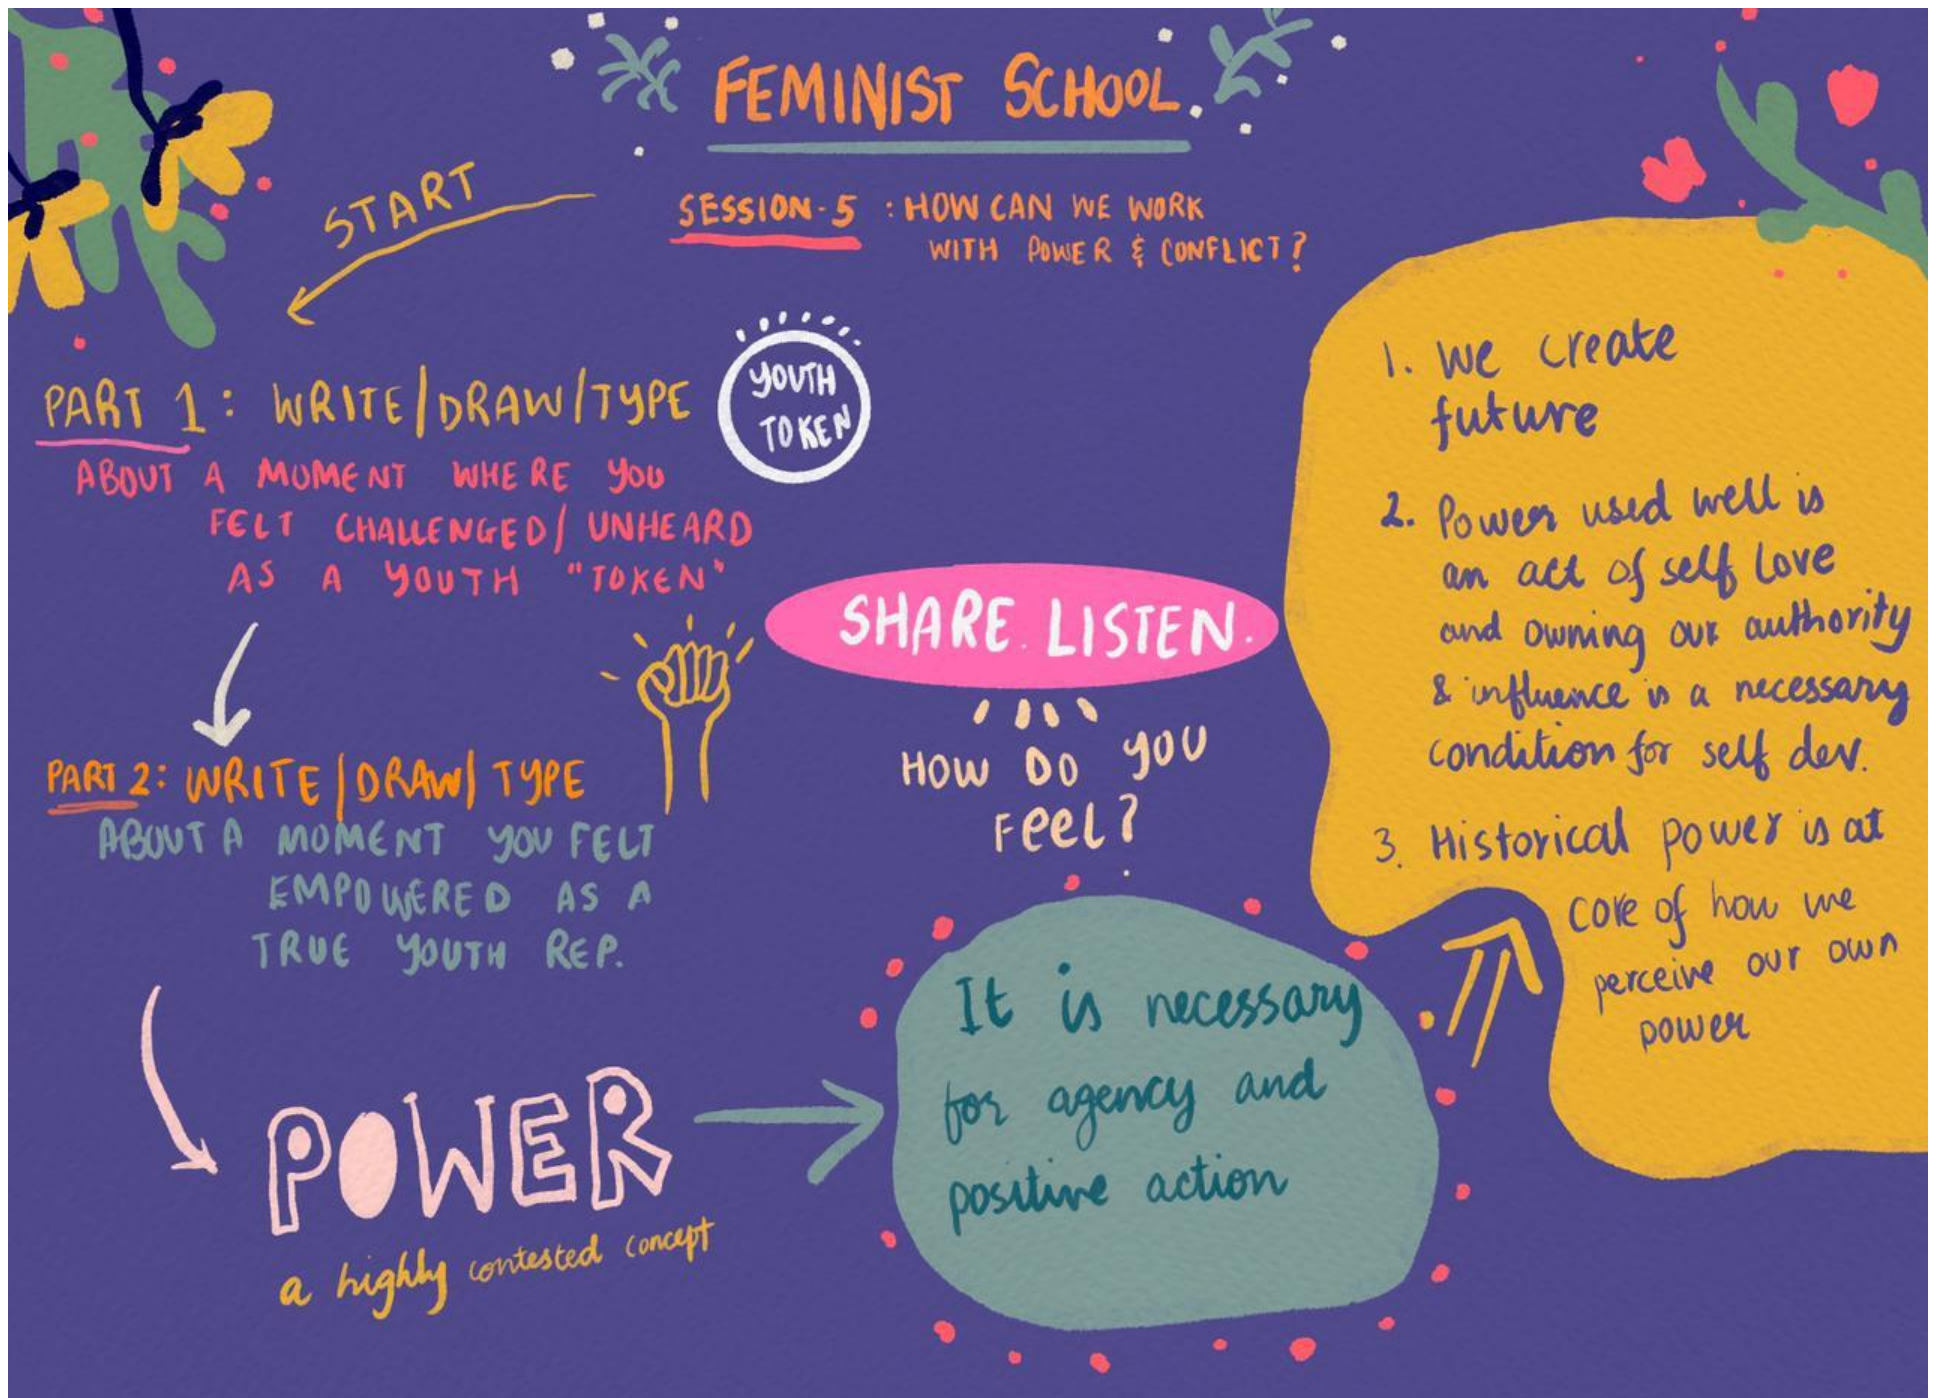 FEMINIST SCHOOL
SESSION-5 : HOW CAN WE WORK
WITH POWER & CONFLICT?
START
PART 1: WRITE/DRAW/TYPE
ABOUT A MOMENT WHERE YOU
FELT CHALLENGED/UNHEARD
AS A YOUTH "TOKEN"
YOUTH
TOKEN
PART 2: WRITE/DRAW/TYPE
ABOUT A MOMENT YOU FELT
EMPOWERED AS A
TRUE YOUTH REP.
SHARE. LISTEN.
HOW DO YOU
FEEL?
POWER
a highly contested concept
It is necessary
for agency and
positive action
1. We create
future
2. Power used well is
an act of self love
and owning our authority
& influence is a necessary
condition for self dev.
3. Historical power is at
core of how we
perceive our own
power